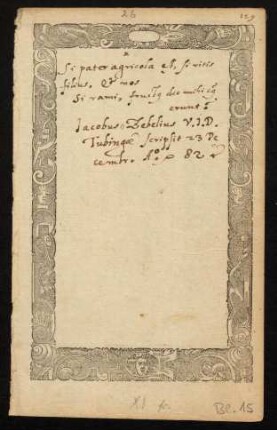 26
129
Si pater agricola est, si vitis
filius, et nos
Si rami, fructus dic mihi
erunt?
Jacobus Zebelius V. J. D.
Tubingæ scripsit 23 De
cembr. Aº 82
XI
Bl. 15